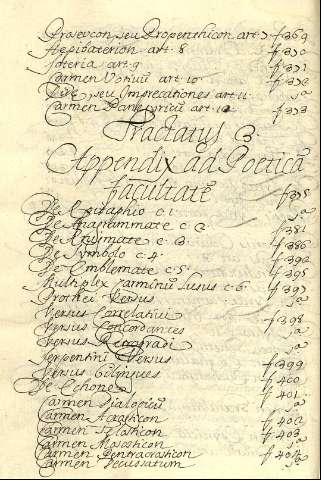 Prosevcon, seu Propenthicon art. 7 f 369
Aepibaterion art. 8 f 370
Soteria art. 9 f 371
Carmen Votivũ art. 10 f 372
Diræ, seu Imprecationes art. 11 ja
Carmen Panegyricũ art. 12 f 373
Tractatus 3.
Appendix ad Poeticã
facultatẽ f 375
De Epitaphio c. 1. ja
De Anagrammate c. 2 f 381
De Ænigmate c. 3. f 386
De Symbolo c. 4. f 392
De Emblemate c. 5. f 395
Multiplex carminũ lusus c. 6. f 397
Prothei Versus ja
Versus Correlativi f 398
Versus Concordantes ja
Versus Retrogradi ja
Serpentini Versus f 399
Versus f 400
De Echone f 401
Carmen Dialogicũ ja
Carmen Acrosticon f 402
Carmen f 403
Carmen Mesosticon ja
Carmen Pentacrosticon f 404
Carmen Decussatum ja